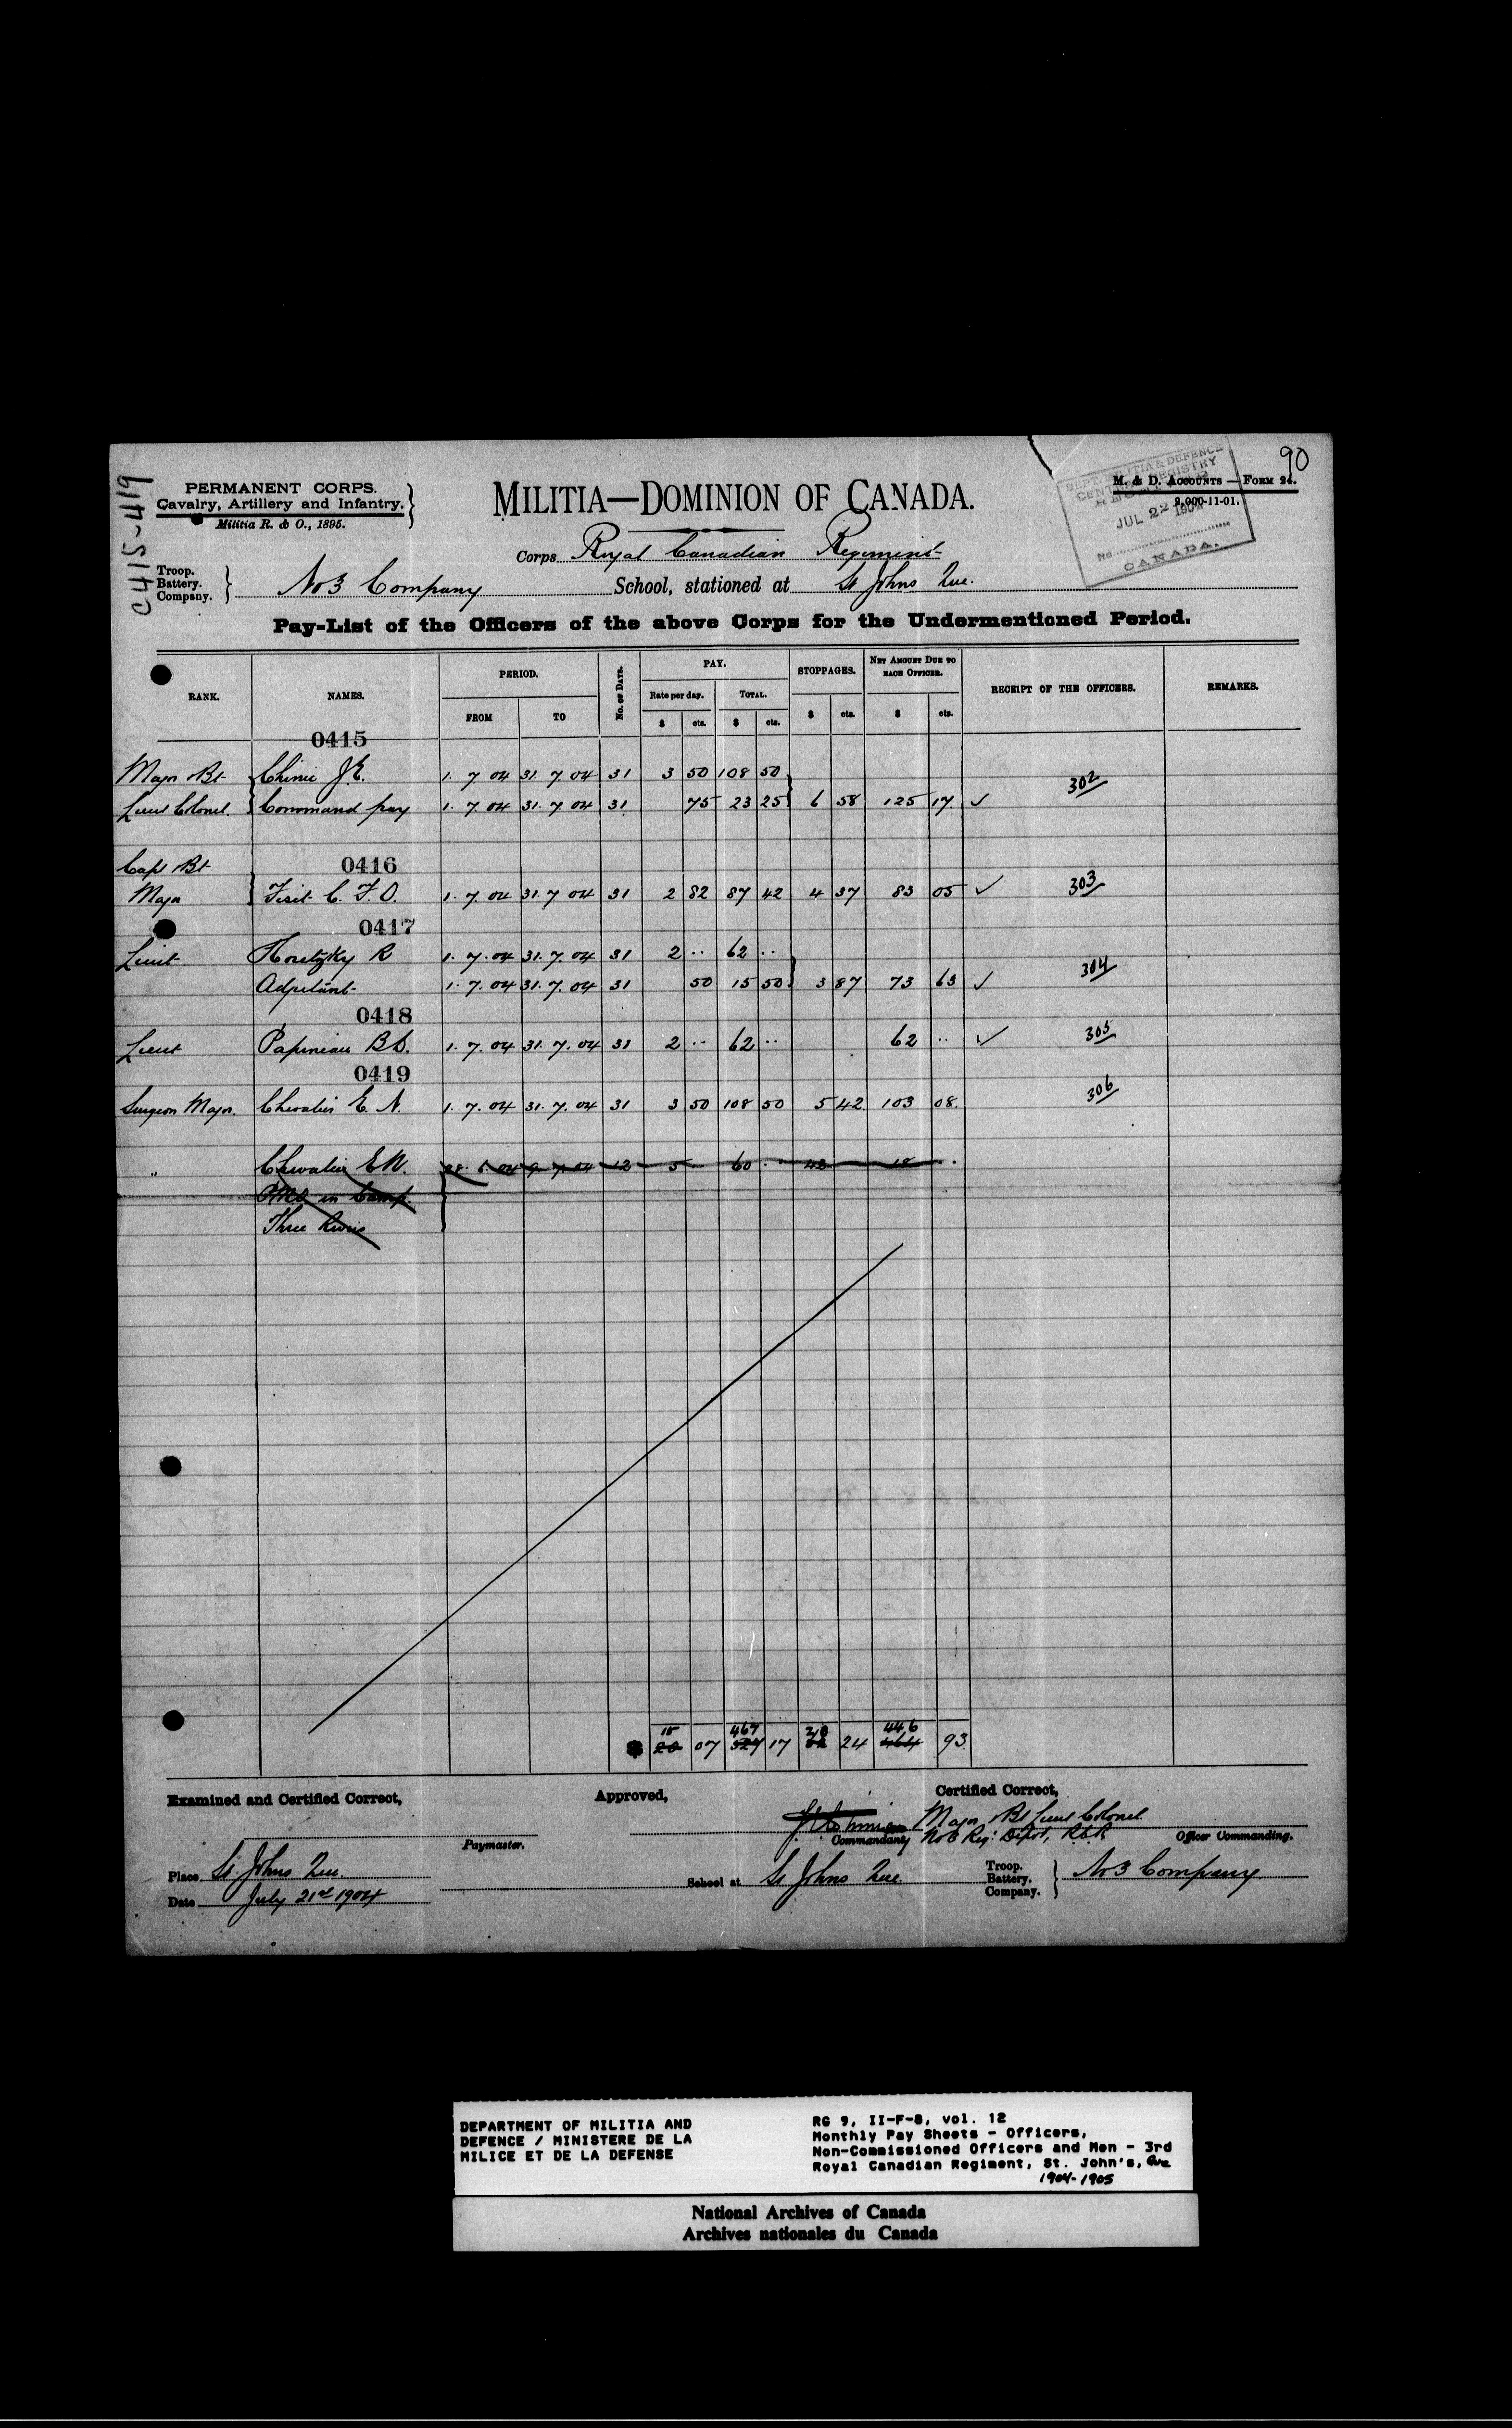 90
C415-419
PERMANENT CORPS.
Cavalry, Artillery and Infantry.
Militia R. & O., 1895.
MILITIA—DOMINION OF CANADA.
M. & D. ACCOUNTS — FORM 24.
2,000-11-01.
DEPT. MILITIA & DEFENCE
CENTRAL REGISTRY
JUL 22 1904
No.
CANADA.
Corps Royal Canadian Regiment
Troop.
Battery.
Company.
No 3 Company School, stationed at St Johns Que.
Pay-List of the Officers of the above Corps for the Undermentioned Period.
RANK. NAMES. PERIOD. No. of Days. PAY. STOPPAGES. NET AMOUNT DUE TO EACH OFFICER. RECEIPT OF THE OFFICERS. REMARKS.
FROM TO Rate per day. TOTAL.
$ cts. $ cts. $ cts. $ cts.
0415
Major Bt Chinic J.E. 1. 7 04 31. 7. 04 31 3 50 108 50
Lieut Colonel. Command pay 1. 7. 04 31. 7 04 31 75 23 25 6 58 125 17 ✓ 302
Capt Bt 0416
Major Fiset C. F. O. 1. 7. 04 31 7 04 31 2 82 87 42 4 37 83 05 ✓ 303
0417
Lieut Horetzky R 1. 7. 04 31. 7. 04 31 2 .. 62 ..
Adjutant 1. 7. 04 31. 7. 04 31 50 15 50 3 87 73 63 ✓ 304
0418
Lieut Papineau B 1. 7. 04 31. 7. 04 31 2 .. 62 .. 62 .. ✓ 305
0419
Surgeon Major. Chevalier E. N. 1. 7. 04 31. 7. 04 31 3 50 108 50 5 42 103 08. 306
" Chevalier E N. 28. 6. 04 9. 7. 04 12 5 60 .. 42 18 ..
in Camp.
Three Rivers
15 467 20 446
$ 20 07 527 17 24 464 93
Examined and Certified Correct,
Approved,
Certified Correct,
Major Bt Lieut Colonel
Paymaster.
Commandant No 3 Reg: Depot, R.C.R
Officer Commanding.
Place St. Johns Que.
School at St Johns Que
Troop.
Battery.
Company.
No 3 Company
Date July 21st 1904
DEPARTMENT OF MILITIA AND
DEFENCE / MINISTERE DE LA
MILICE ET DE LA DEFENSE
RG 9, II-F-8, vol. 12
Monthly Pay Sheets - Officers,
Non-Commissioned Officers and Men - 3rd
Royal Canadian Regiment, St. John's, Que
1904-1905
National Archives of Canada
Archives nationales du Canada